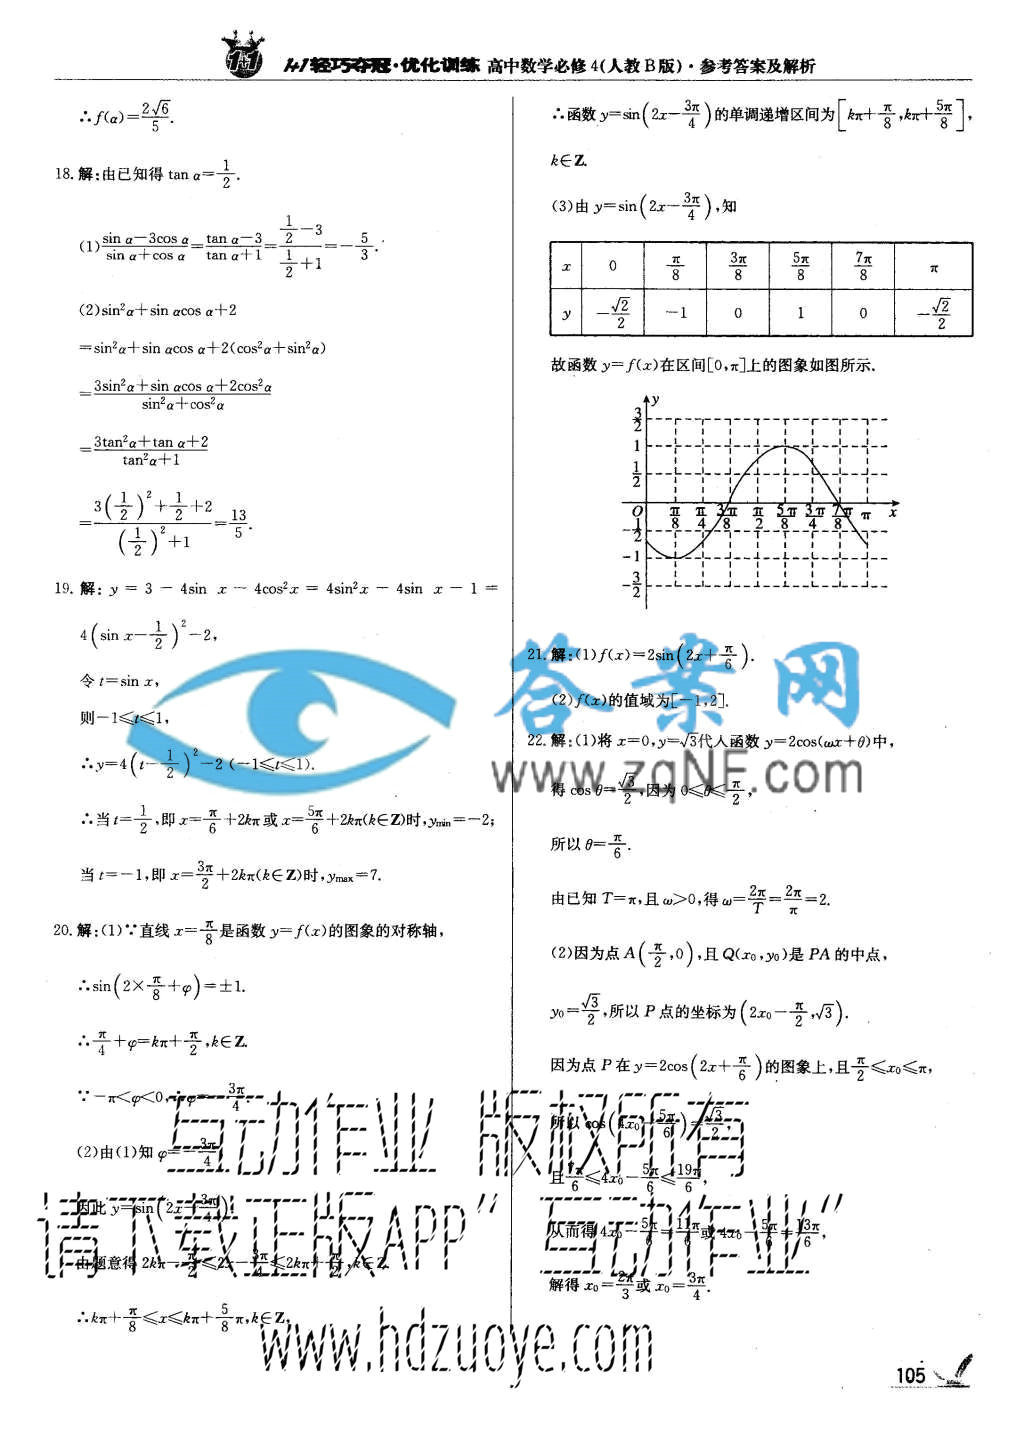 1+1轻巧夺冠·优化训练 高中数学必修4(人教B版)·参考答案及解析
∴f(α)=2√6/5.
18.解:由已知得 tan α=1/2.
(1)(sin α-3cos α)/(sin α+cos α)=(tan α-3)/(tan α+1)=(1/2-3)/(1/2+1)=-5/3.
(2)sin²α+sin αcos α+2
=sin²α+sin αcos α+2(cos²α+sin²α)
=(3sin²α+sin αcos α+2cos²α)/(sin²α+cos²α)
=(3tan²α+tan α+2)/(tan²α+1)
=(3(1/2)²+1/2+2)/((1/2)²+1)=13/5.
19.解: y = 3 - 4sin x - 4cos²x = 4sin²x - 4sin x - 1 =
4(sin x-1/2)²-2,
令 t=sin x,
则-1≤t≤1,
∴y=4(t-1/2)²-2 (-1≤t≤1).
∴当 t=1/2,即 x=π/6+2kπ或 x=5π/6+2kπ(k∈Z)时,ymin=-2;
当 t=-1,即 x=3π/2+2kπ(k∈Z)时,ymax=7.
20.解:(1)∵直线 x=π/8是函数 y=f(x)的图象的对称轴,
∴sin(2×π/8+φ)=±1.
∴π/4+φ=kπ+π/2,k∈Z.
∵-π<φ<0,∴φ=-3π/4.
(2)由(1)知 φ=-3π/4
因此 y=sin(2x-3π/4).
由题意得 2kπ-π/2≤2x-3π/4≤2kπ+π/2,k∈Z.
∴kπ+π/8≤x≤kπ+5/8π,k∈Z,
∴函数 y=sin(2x-3π/4)的单调递增区间为[kπ+π/8,kπ+5π/8],
k∈Z.
(3)由 y=sin(2x-3π/4),知
x 0 π/8 3π/8 5π/8 7π/8 π
y -√2/2 -1 0 1 0 -√2/2
故函数 y=f(x)在区间[0,π]上的图象如图所示.
y
3/2
1
1/2
O π/8 π/4 3π/8 π/2 5π/8 3π/4 7π/8 π x
-1/2
-1
-3/2
21.解:(1)f(x)=2sin(2x+π/6).
(2)f(x)的值域为[-1,2].
22.解:(1)将 x=0,y=√3代入函数 y=2cos(ωx+θ)中,
得 cos θ=√3/2,因为 0≤θ≤π/2,
所以 θ=π/6.
由已知 T=π,且 ω>0,得 ω=2π/T=2π/π=2.
(2)因为点 A(π/2,0),且 Q(x₀,y₀)是 PA 的中点,
y₀=√3/2,所以 P 点的坐标为(2x₀-π/2,√3).
因为点 P 在 y=2cos(2x+π/6)的图象上,且π/2≤x₀≤π,
所以 cos(4x₀-5π/6)=√3/2,
且7π/6≤4x₀-5π/6≤19π/6,
从而得 4x₀-5π/6=11π/6或 4x₀-5π/6=13π/6,
解得 x₀=2π/3或 x₀=3π/4.
105
答案网
www.zqNF.com
互动作业 版权所有
请下载正版APP"互动作业"
www.hdzuoye.com